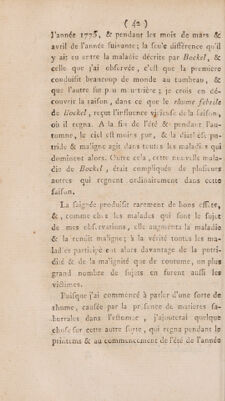 ( 42 )
l'année 1775, & pendant les mois de mars &
avril de l'année suivante; la seule différence qu'il
y ait eu entre la maladie décrite par Bockel, &
celle que j'ai observée, c'est que la premiere
conduisit beaucoup de monde au tombeau, &
que l'autre fut peu meurtriere; je crois en dé-
couvrir la raison, dans ce que le rhume febrile
de Bockel, reçut l'influence vicieuse de la saison,
où il regna. A la fin de l'été & pendant l'au-
tomne, le ciel est moins pur, & la diathese pu-
tride & maligne agit dans toutes les maladies qui
dominent alors. Outre cela, cette nouvelle mala-
die de Bockel, était compliquée de plusieurs
autres qui regnent ordinairement dans cette
saison.
La saignée produisit rarement de bons effets,
&, comme chez les malades qui sont le sujet
de mes observations, elle augmenta la maladie
& la rendit maligne; à la vérité toutes les ma-
ladies participaient alors davantage de la putri-
dité & de la malignité que de coutume, un plus
grand nombre de sujets en furent aussi les
victimes.
Puisque j'ai commencé à parler d'une sorte de
rhume, causée par la présence de matieres sa-
burrales dans l'estomac, j'ajouterai quelque
chose sur cette autre sorte, qui regna pendant le
printems & au commencement de l'été de l'année